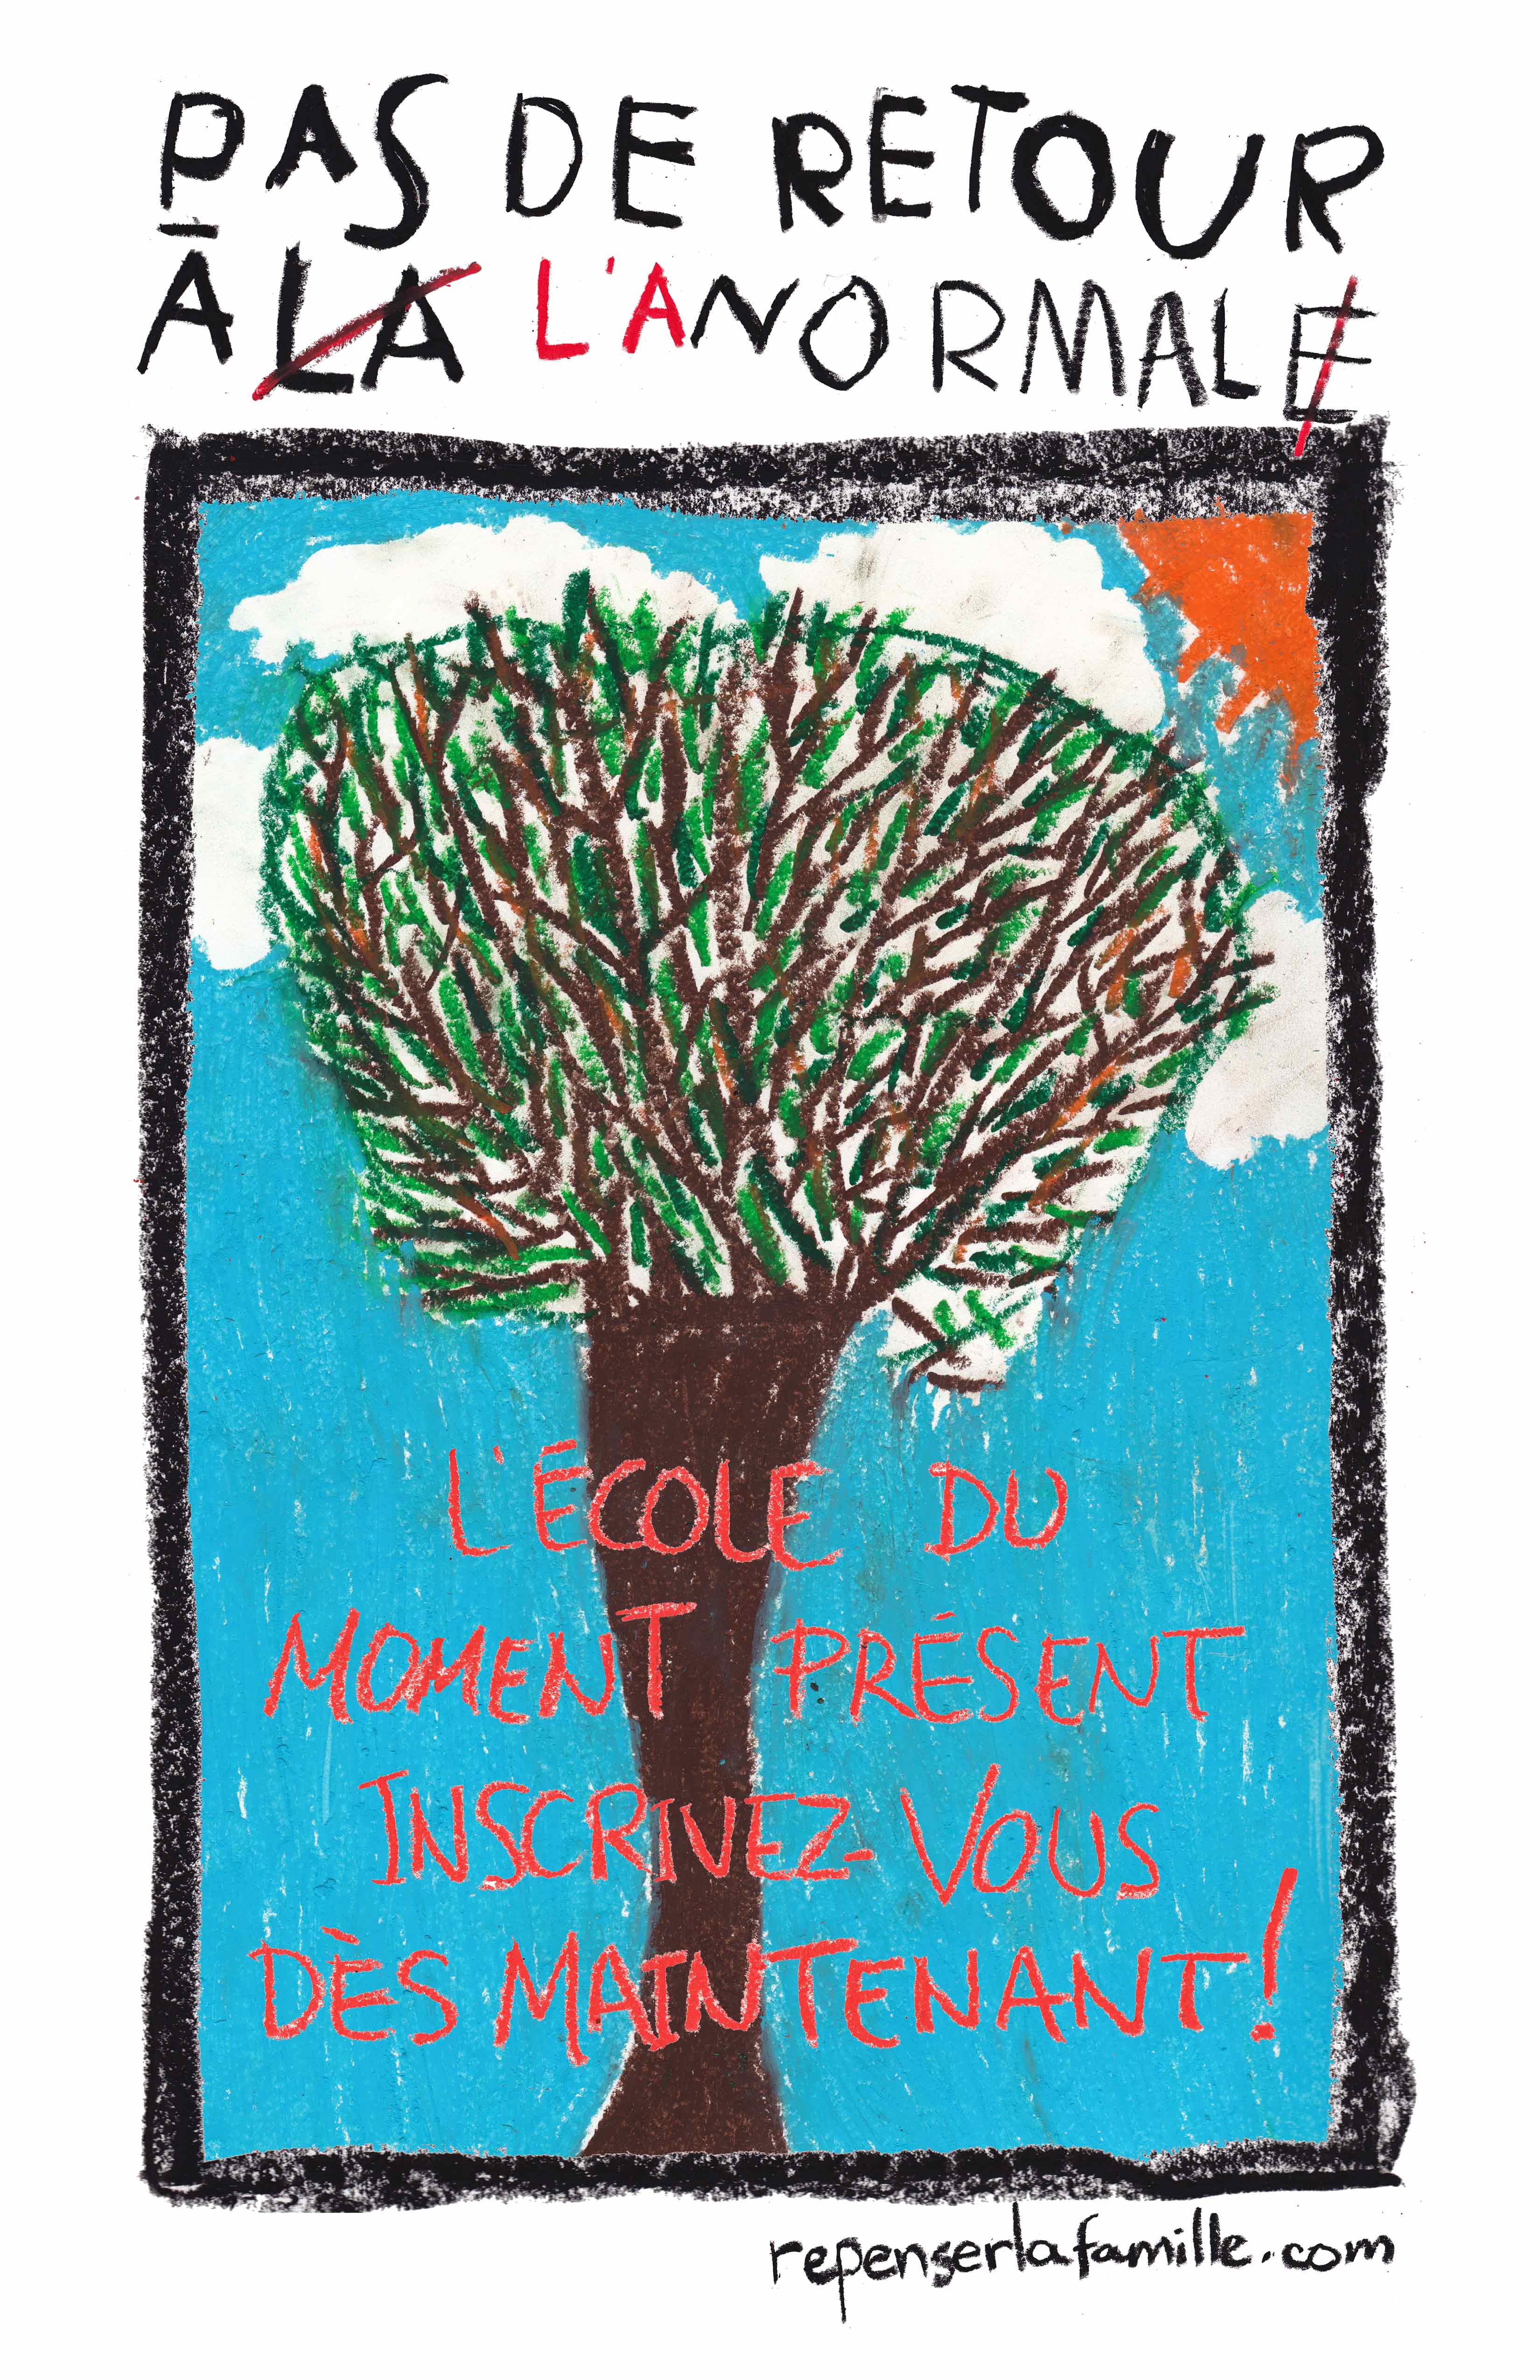 PAS DE RETOUR
À LA L'ANORMALE
L'ÉCOLE DU
MOMENT PRÉSENT
INSCRIVEZ-VOUS
DÈS MAINTENANT!
repenserlafamille.com